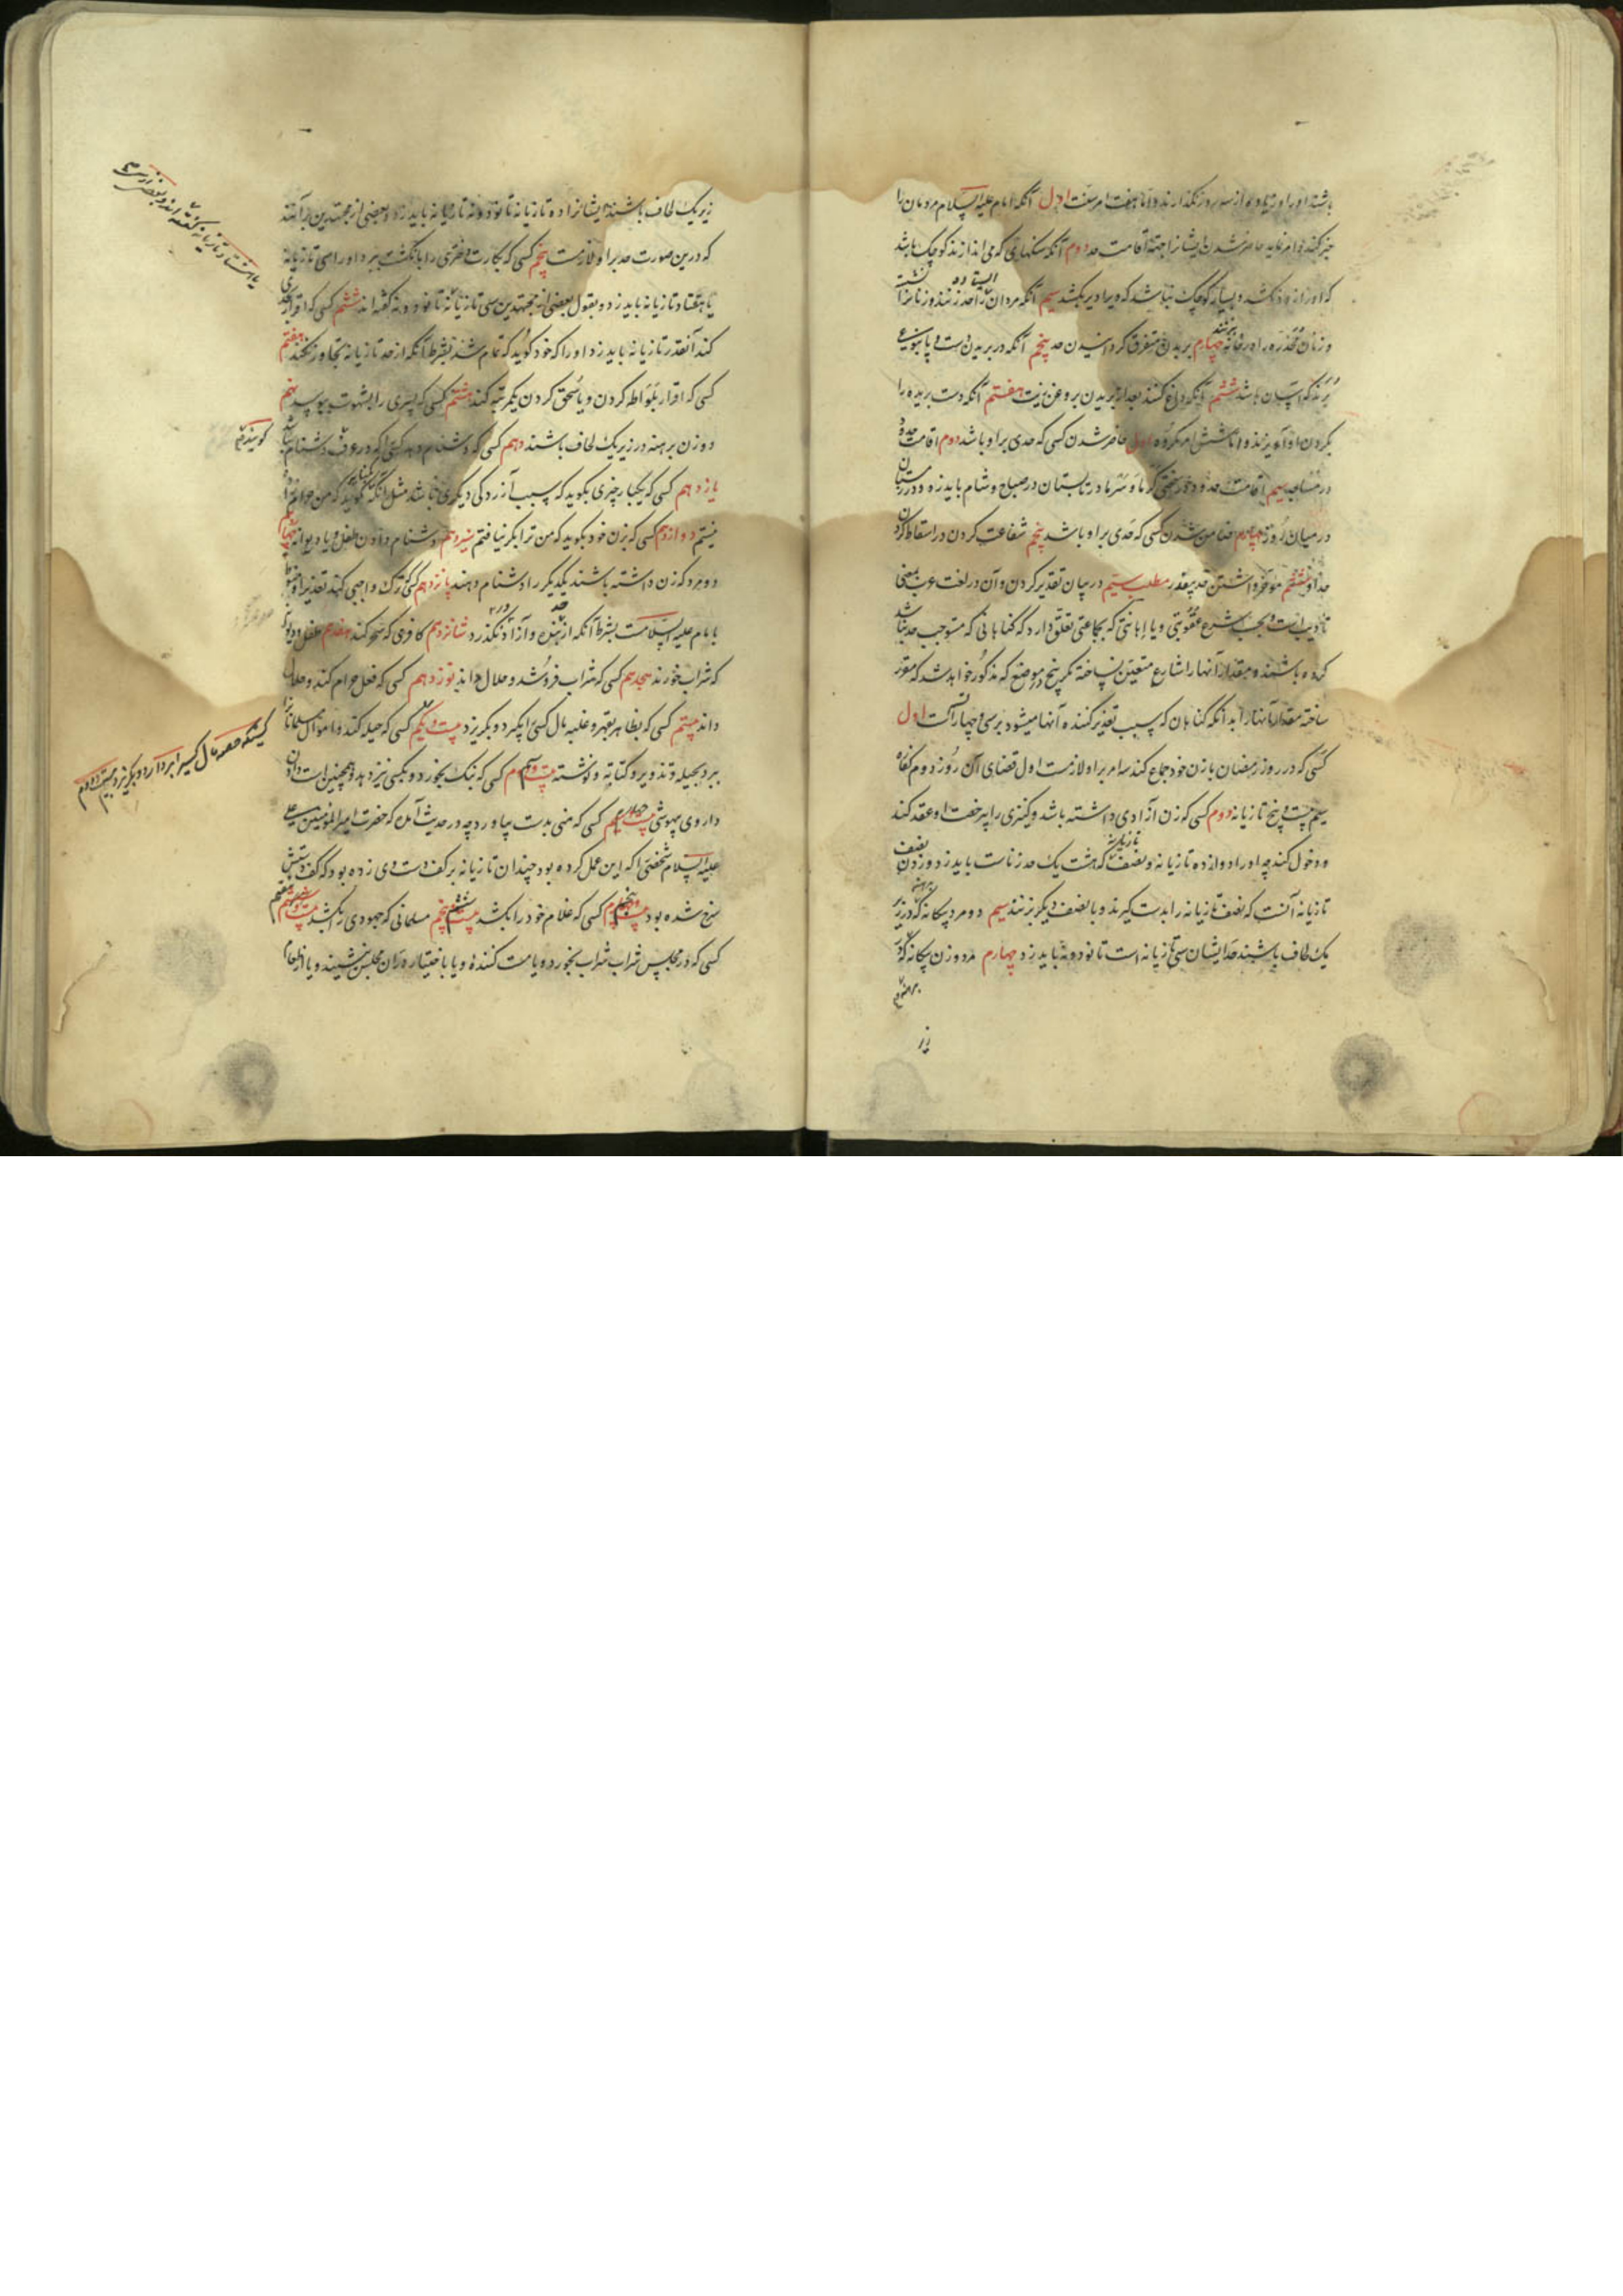 باشند او را و زیاده از سه روز نگذارند و اما هفت امر سنت اول آنکه امام علیه السلام مردمان را
خبر کند و امر نماید حاضر شدن ایشان را جهة اقامت حد دوم آنکه سنکهائی که می اندازند کوچک باشد
که او را زود نکشد و بسیار کوچک نباشد که ویرا دیر بکشد سیم آنکه مردان را ایستاده حد زنند و زنانرا نشسته
و زنان مخدره را در خانه بزنند چهارم بر بدن متفرق گردانیدن حد پنجم آنکه در بریدن دست و پا بنوعی
برند که آسان باشد ششم آنکه داغ کنند بعد از بریدن بروغن زیت هفتم آنکه دست بریده را
بگردن او آویزند و اما شش امر مکروه اول حاضر شدن کسی که حدی بر او باشد دوم اقامت حدود
در مساجد سیم اقامت حدود در سختی گرما و سرما در تابستان در صباح و شام باید زد و در زمستان
در میان روز چهارم ضامن شدن کسی که حدی بر او باشد پنجم شفاعت کردن در اسقاط کردن
حد و ششم مؤخر داشتن حد بیعذر مطلب سیم در بیان تعذیر کردن و آن در لغت عرب بمعنی
تأدیب است و بحسب شرع عقوبتی و یا اهانتی که بجماعتی تعلق دارد که گناهانی که مستوجب حد نباشد
کرده باشند و مقدار آنها را شارع متعین نساخته مگر پنج موضع که مذکور خواهد شد که مقرر
ساخته مقدار آنها را بدانکه گناهان که سبب تعذیر کننده آنها میشود بر سی و چهار قسم است اول
کسی که در روز رمضان با زن خود جماع کند سه امر بر او لازمست اول قضای آن روز دوم کفاره
سیم بیست و پنج تازیانه دوم کسی که زن آزادی داشته باشد و کنیزی را بیرخصت او عقد کند
و دخول کند چه او را دوازده تازیانه و نصف تازیانه که هشت یک حد زناست باید زد و زدن نصف
تازیانه آنست که نصف تازیانه را بدست گیرند و با نصف دیگر بزنند سیم دو مرد بیکانه که برهنه در زیر
یک لحاف باشند حد ایشان سی تازیانه است تا نود و نه باید زد چهارم مرد و زن بیکانه که در
برهنه
زیر
زیر یک لحاف باشند ایشانرا ده تازیانه تا نود و نه تازیانه باید زد و بعضی از مجتهدین برآنند
که درین صورت حد بر او لازمست پنجم کسی که بکارت دختری را بانگشت ببرد او را سی تازیانه
یا هفتاد تازیانه باید زد و بقول بعضی از مجتهدین سی تازیانه تا نود و نه گفته اند ششم کسی که اقرار بحدی
کند آنقدر تازیانه باید زد او را که خود گوید که تمام شد بشرط آنکه از صد تازیانه تجاوز نکند هفتم
کسی که اقرار بلواطه کردن و یا سحق کردن یکمرتبه کند هشتم کسی که پسری را بشهوت ببوسد نهم
دو زن برهنه در زیر یک لحاف باشند دهم کسی که دشنام دهد کسی را که در عرف دشنام نباشد
یازدهم کسی که بکنایه چیزی بگوید که سبب آزردگی دیگری باشد مثل آنکه گوید که من حرامزاده
نیستم دوازدهم کسی که بزن خود بگوید که من ترا بکر نیافتم سیزدهم دشنام دادن طفل و یا دیوانه چهاردهم
دو مرد که زن داشته باشند یکدیگر را دشنام دهند پانزدهم کسی که ترک واجبی کند تعذیر او منوط
بامام علیه السلامست بشرط آنکه از حد بنده و آزاد در نگذرد شانزدهم کافری که سحر کند هفدهم طفل و دیوانه
که شراب خورند هجدهم کسی که شراب فروشد و حلال داند نوزدهم کسی که فعل حرام کند و حلال
داند بیستم کسی که بظاهر بقهر و غلبه مال کسی را بگیرد و بگریزد بیست و یکم کسی که حیله کند و اموال مسلمانانرا
ببرد بحیله و تزویر و کتابه و نوشته بیست و سیم کسی که بنک بخورد و بکسی نیز دهد و همچنین است دادن
داروی بیهوشی بیست و چهارم کسی که منی بدست بیاورد چه در حدیث آمده که حضرت امیر المؤمنین علی
علیه السلام شخصی را که این عمل کرده بود چندان تازیانه بر کف دست وی زده بود که کف دستش
سرخ شده بود بیست و پنجم کسی که غلام خود را بکشد بیست و ششم مسلمانی که جهودی را بکشد بیست و هفتم
کسی که در مجلس شراب شراب بخورد و یا مست کننده و یا باختیار در آن مجلس نشیند و یا از طعام
یا هشتاد تازیانه گفته اند و بعضی
گویند
کسیکه خفیه مال کسیرا بردارد و بگریزد بیست و دوم